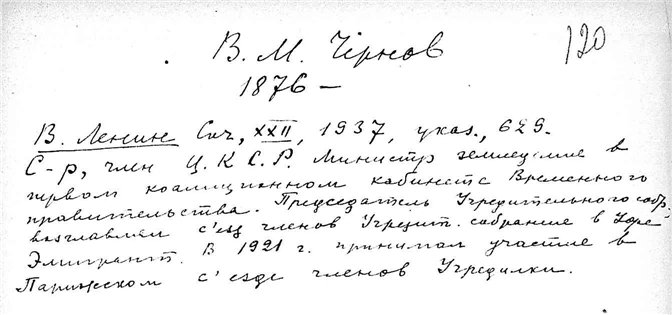 В. М. Чернов
120
1876 –
В. Ленин Соч., XXII, 1937, указ., 629.
С-р, член Ц.К С.Р. Министр земледелие в
первом коалиционном кабинете Временного
правительства. Председатель Учредительного собр.
возглавлял с'езд членов Учредит. собрание в
Эмигрант. В 1921 г. принимал участие в
Парижском с'езде членов Учредилки.